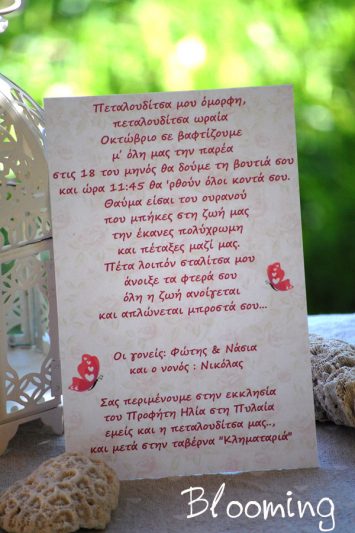 Πεταλουδίτσα μου όμορφη,
πεταλουδίτσα ωραία
Οκτώβριο σε βαφτίζουμε
μ΄ όλη μας την παρέα
στις 18 του μηνός θα δούμε τη βουτιά σου
και ώρα 11:45 θα 'ρθούν όλοι κοντά σου.
Θαύμα είσαι του ουρανού
που μπήκες στη ζωή μας
την έκανες πολύχρωμη
και πέταξες μαζί μας.
Πέτα λοιπόν σταλίτσα μου
άνοιξε τα φτερά σου
όλη η ζωή ανοίγεται
και απλώνεται μπροστά σου...
Οι γονείς: Φώτης & Νάσια
και ο νονός : Νικόλας
Σας περιμένουμε στην εκκλησία
του Προφήτη Ηλία στη Πυλαία
εμείς και η πεταλουδίτσα μας..,
και μετά στην ταβέρνα "Κληματαριά"
Blooming